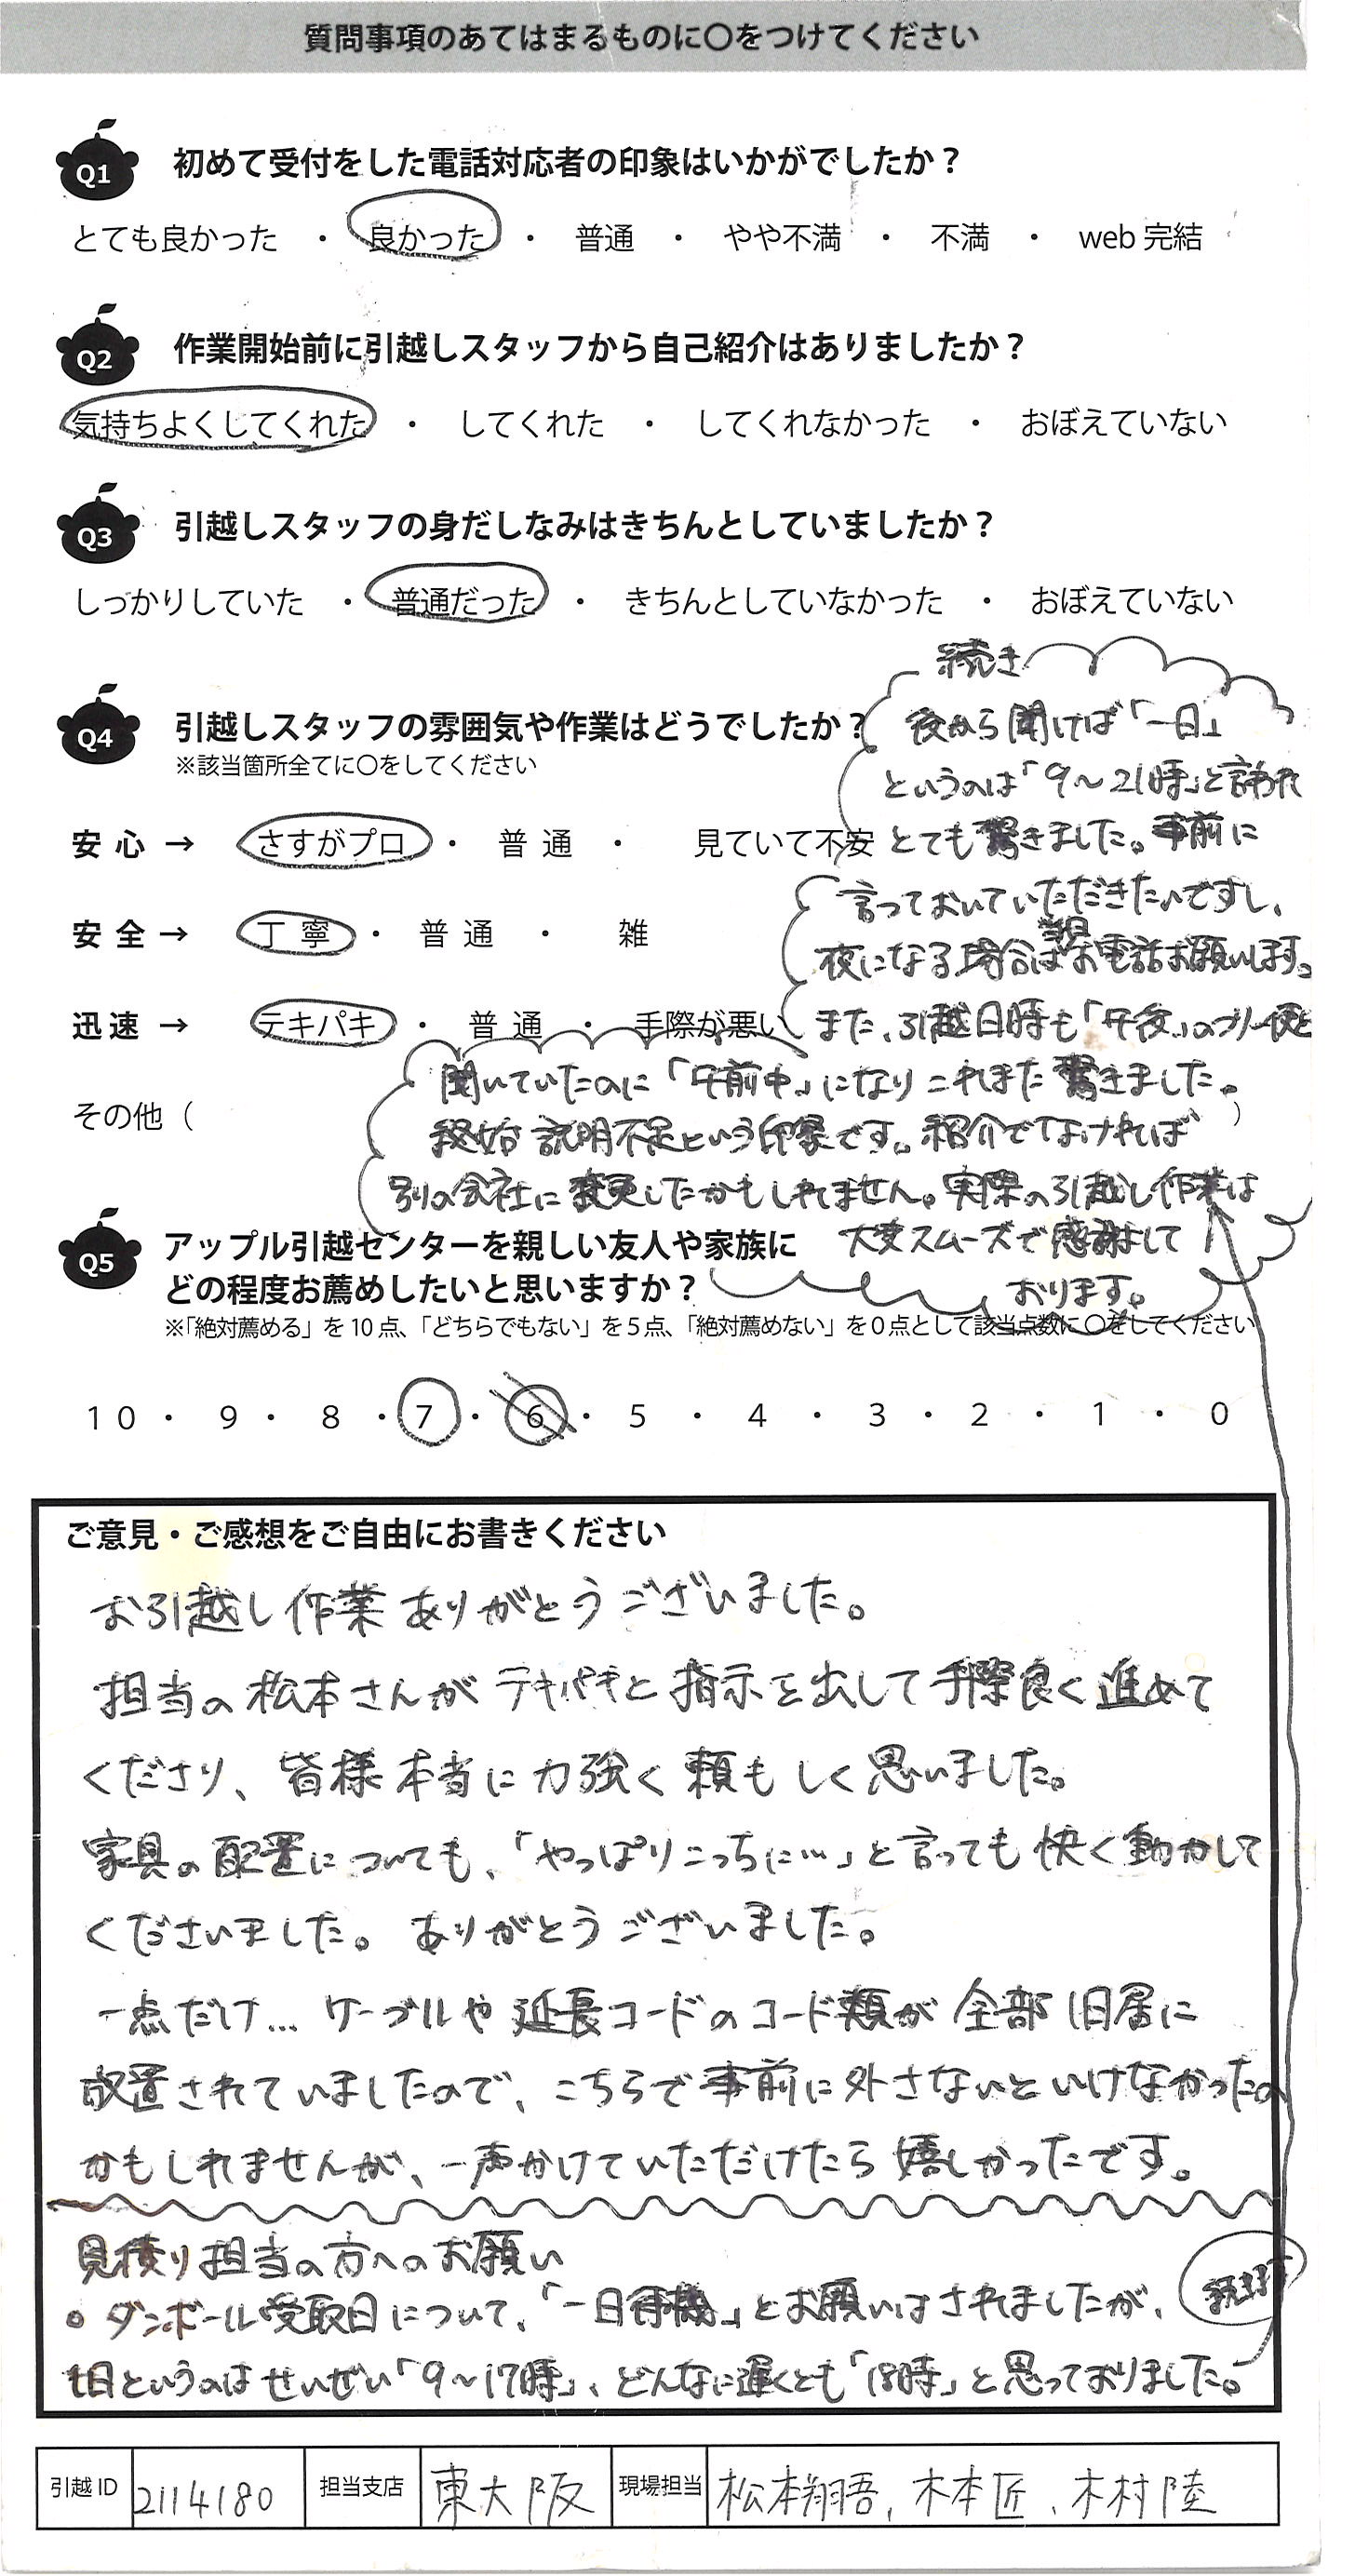 質問事項のあてはまるものに〇をつけてください
Q1 初めて受付をした電話対応者の印象はいかがでしたか？
とても良かった ・ 良かった ・ 普通 ・ やや不満 ・ 不満 ・ web 完結
Q2 作業開始前に引越しスタッフから自己紹介はありましたか？
気持ちよくしてくれた ・ してくれた ・ してくれなかった ・ おぼえていない
Q3 引越しスタッフの身だしなみはきちんとしていましたか？
しっかりしていた ・ 普通だった ・ きちんとしていなかった ・ おぼえていない
Q4 引越しスタッフの雰囲気や作業はどうでしたか？
※該当箇所全てに〇をしてください
安心 → さすがプロ ・ 普通 ・ 見ていて不安
安全 → 丁寧 ・ 普通 ・ 雑
迅速 → テキパキ ・ 普通 ・ 手際が悪い
その他（ ）
Q5 アップル引越センターを親しい友人や家族に
どの程度お薦めしたいと思いますか？
※「絶対薦める」を10点、「どちらでもない」を5点、「絶対薦めない」を0点として該当点数に〇をしてください
10 ・ 9 ・ 8 ・ 7 ・ 6 ・ 5 ・ 4 ・ 3 ・ 2 ・ 1 ・ 0
ご意見・ご感想をご自由にお書きください
お引越し作業ありがとうございました。
担当の松本さんがテキパキと指示を出して手際良く進めて
くださり、皆様本当に力強く頼もしく思いました。
家具の配置についても、「やっぱりこっちに…」と言っても快く動かして
くださいました。ありがとうございました。
一点だけ…ケーブルや延長コードのコード類が全部旧居に
放置されていましたので、こちらで事前に外さないといけなかったの
かもしれませんが、一声かけていただけたら嬉しかったです。
見積り担当の方へのお願い
○ダンボール受取日について、「一日待機」とお願いはされましたが、
1日というのはせいぜい「9～17時」、どんなに遅くとも「18時」と思っておりました。
続きます
続き
夜から聞けば「一日」
というのは「9～21時」と言われ
とても驚きました。事前に
言っておいていただきたいですし、
夜になる場合は当日お電話お願いします。
また、引越日時も「午後」のフリー便と
聞いていたのに「午前中」になりこれまた驚きました。
終始説明不足という印象です。紹介でなければ
別の会社に変更したかもしれません。実際の引越し作業は
大変スムーズで感謝して
おります。
引越ID 2114180 担当支店 東大阪 現場担当 松本翔吾、木本匠、木村陸